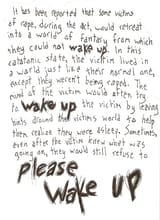 It has been reported that some victims
of rape, during the act, would retreat
into a world of fantasy from which
they could not WAKE UP. In this
catatonic state, the victim lived in
a world just like their normal one,
except they weren't being raped. The
mind of the victim would often try
to WAKE UP the victim by leaving
hints around the victims world to help
them realize they were asleep. Sometimes,
even after the victim knew what was
going on, they would still refuse to
Please
Wake UP